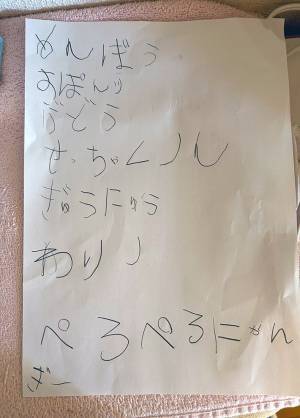 めんぼう
ぶどう
せっちゃくノん
ぎゅうにゅう
わりノ
ぺろぺろにゃん
ぎー